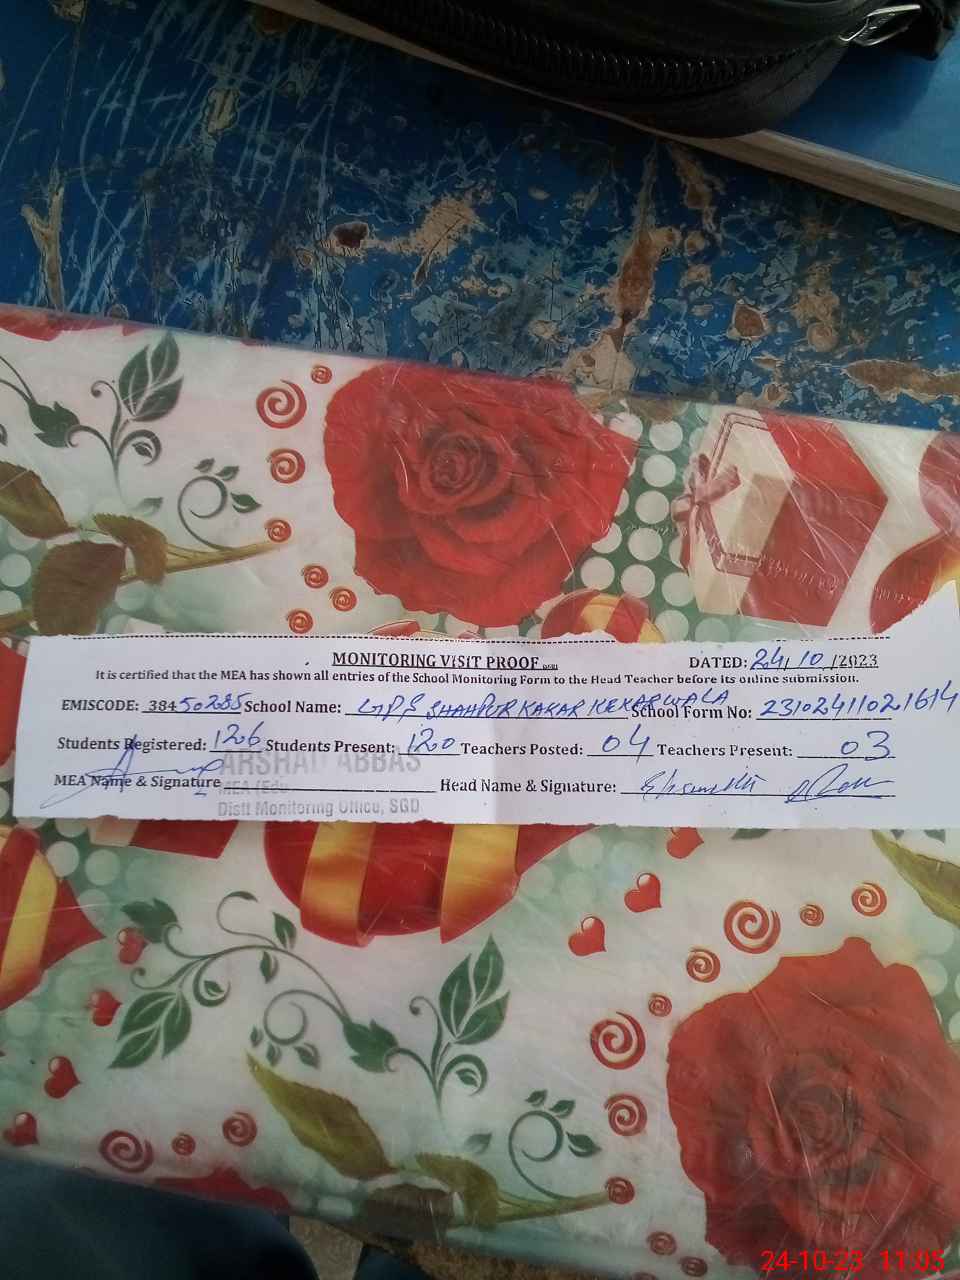 MONITORING VISIT PROOF DATED: 24/10/2023
It is certified that the MEA has shown all entries of the School Monitoring Form to the Head Teacher before its online submission.
EMISCODE: 38450285 School Name: GPS SHAHPUR KAKAR KEKARWALA School Form No: 23102411021614
Students Registered: 126 Students Present: 120 Teachers Posted: 04 Teachers Present: 03
ARSHAD ABBAS
MEA Name & Signature MEA (Edu Head Name & Signature:
Distt Monitoring Office, SGD
24-10-23 11:05